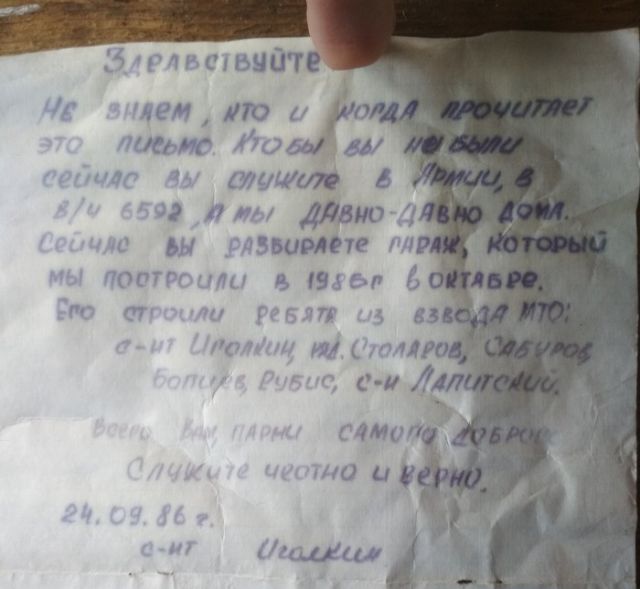 Здравствуйте
Не знаем, кто и когда прочитает
это письмо. Кто бы вы не были
сейчас вы служите в Армии, в
в/ч 6592, а мы давно-давно дома.
Сейчас вы разбираете гараж, который
мы построили в 1986г в октябре.
Его строили ребята из взвода МТО:
с-нт Иголкин, мл. Столаров, Сабуров,
Бопиев, Рубис, с-н Лапитский.
Всего Вам, парни самого доброго
Служите честно и верно.
24.09.86 г.
с-нт Иголкин